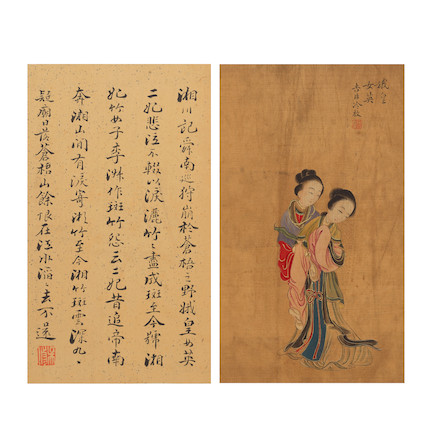 湘川記舜南巡狩崩於蒼梧之野娥皇女英
二妃悲泣不輟以淚灑竹竹盡成斑至今稱湘
妃竹女子李淑作斑竹怨云二妃昔追帝南
奔湘山間有淚寄湘竹至今湘竹斑雲深九
疑廟日落蒼梧山餘恨在江水滔々去不還
娥皇
女英
吉日冷枚